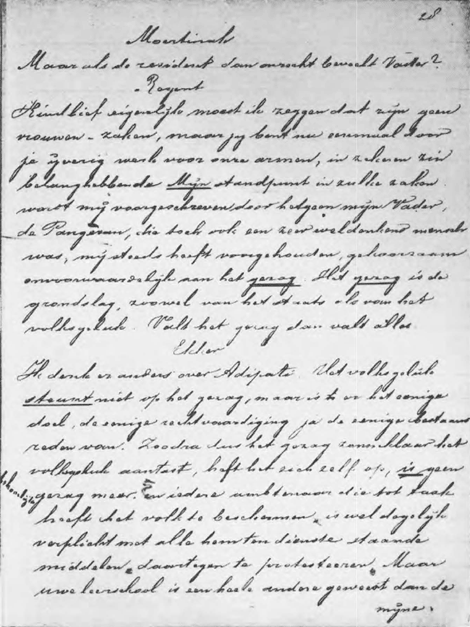 28
Moertinah
Maar als de resident dan onrecht beveelt Vader?
Regent
Kindlief eigenlijk moest ik zeggen dat zijn geen
vrouwen-zaken, maar jy bent nu eenmaal door
je ijverig werk voor onze armen, in zekeren zin
belanghebbende Mijn standpunt in zulke zaken
wordt mij voorgeschreven door hetgeen mijn Vader,
de Pangeran, die toch ook een zeer weldenkend mensch
was, mij steeds heeft voorgehouden, gehoorzaam
onvoorwaardelijk aan het gezag. Het gezag is de
grondslag, zoowel van het staats als van het
volksgeluk. Valt het gezag dan valt alles.
Edder
Ik denk er anders over Adipati. Het volksgeluk
steunt niet op het gezag, maar is er het eenige
doel, de eenige rechtvaardiging ja de eenige bestaans
reden van. Zoodra dus het gezag zonneklaar het
volksgeluk aantast, heft het zich zelf op, is geen
gezag meer. En iedere ambtenaar die tot taak
heeft het volk te beschermen, is wel degelijk
verplicht met alle hem ten dienste staande
middelen daartegen te protesteeren. Maar
uwe leerschool is een heele andere geweest dan de
mijne.